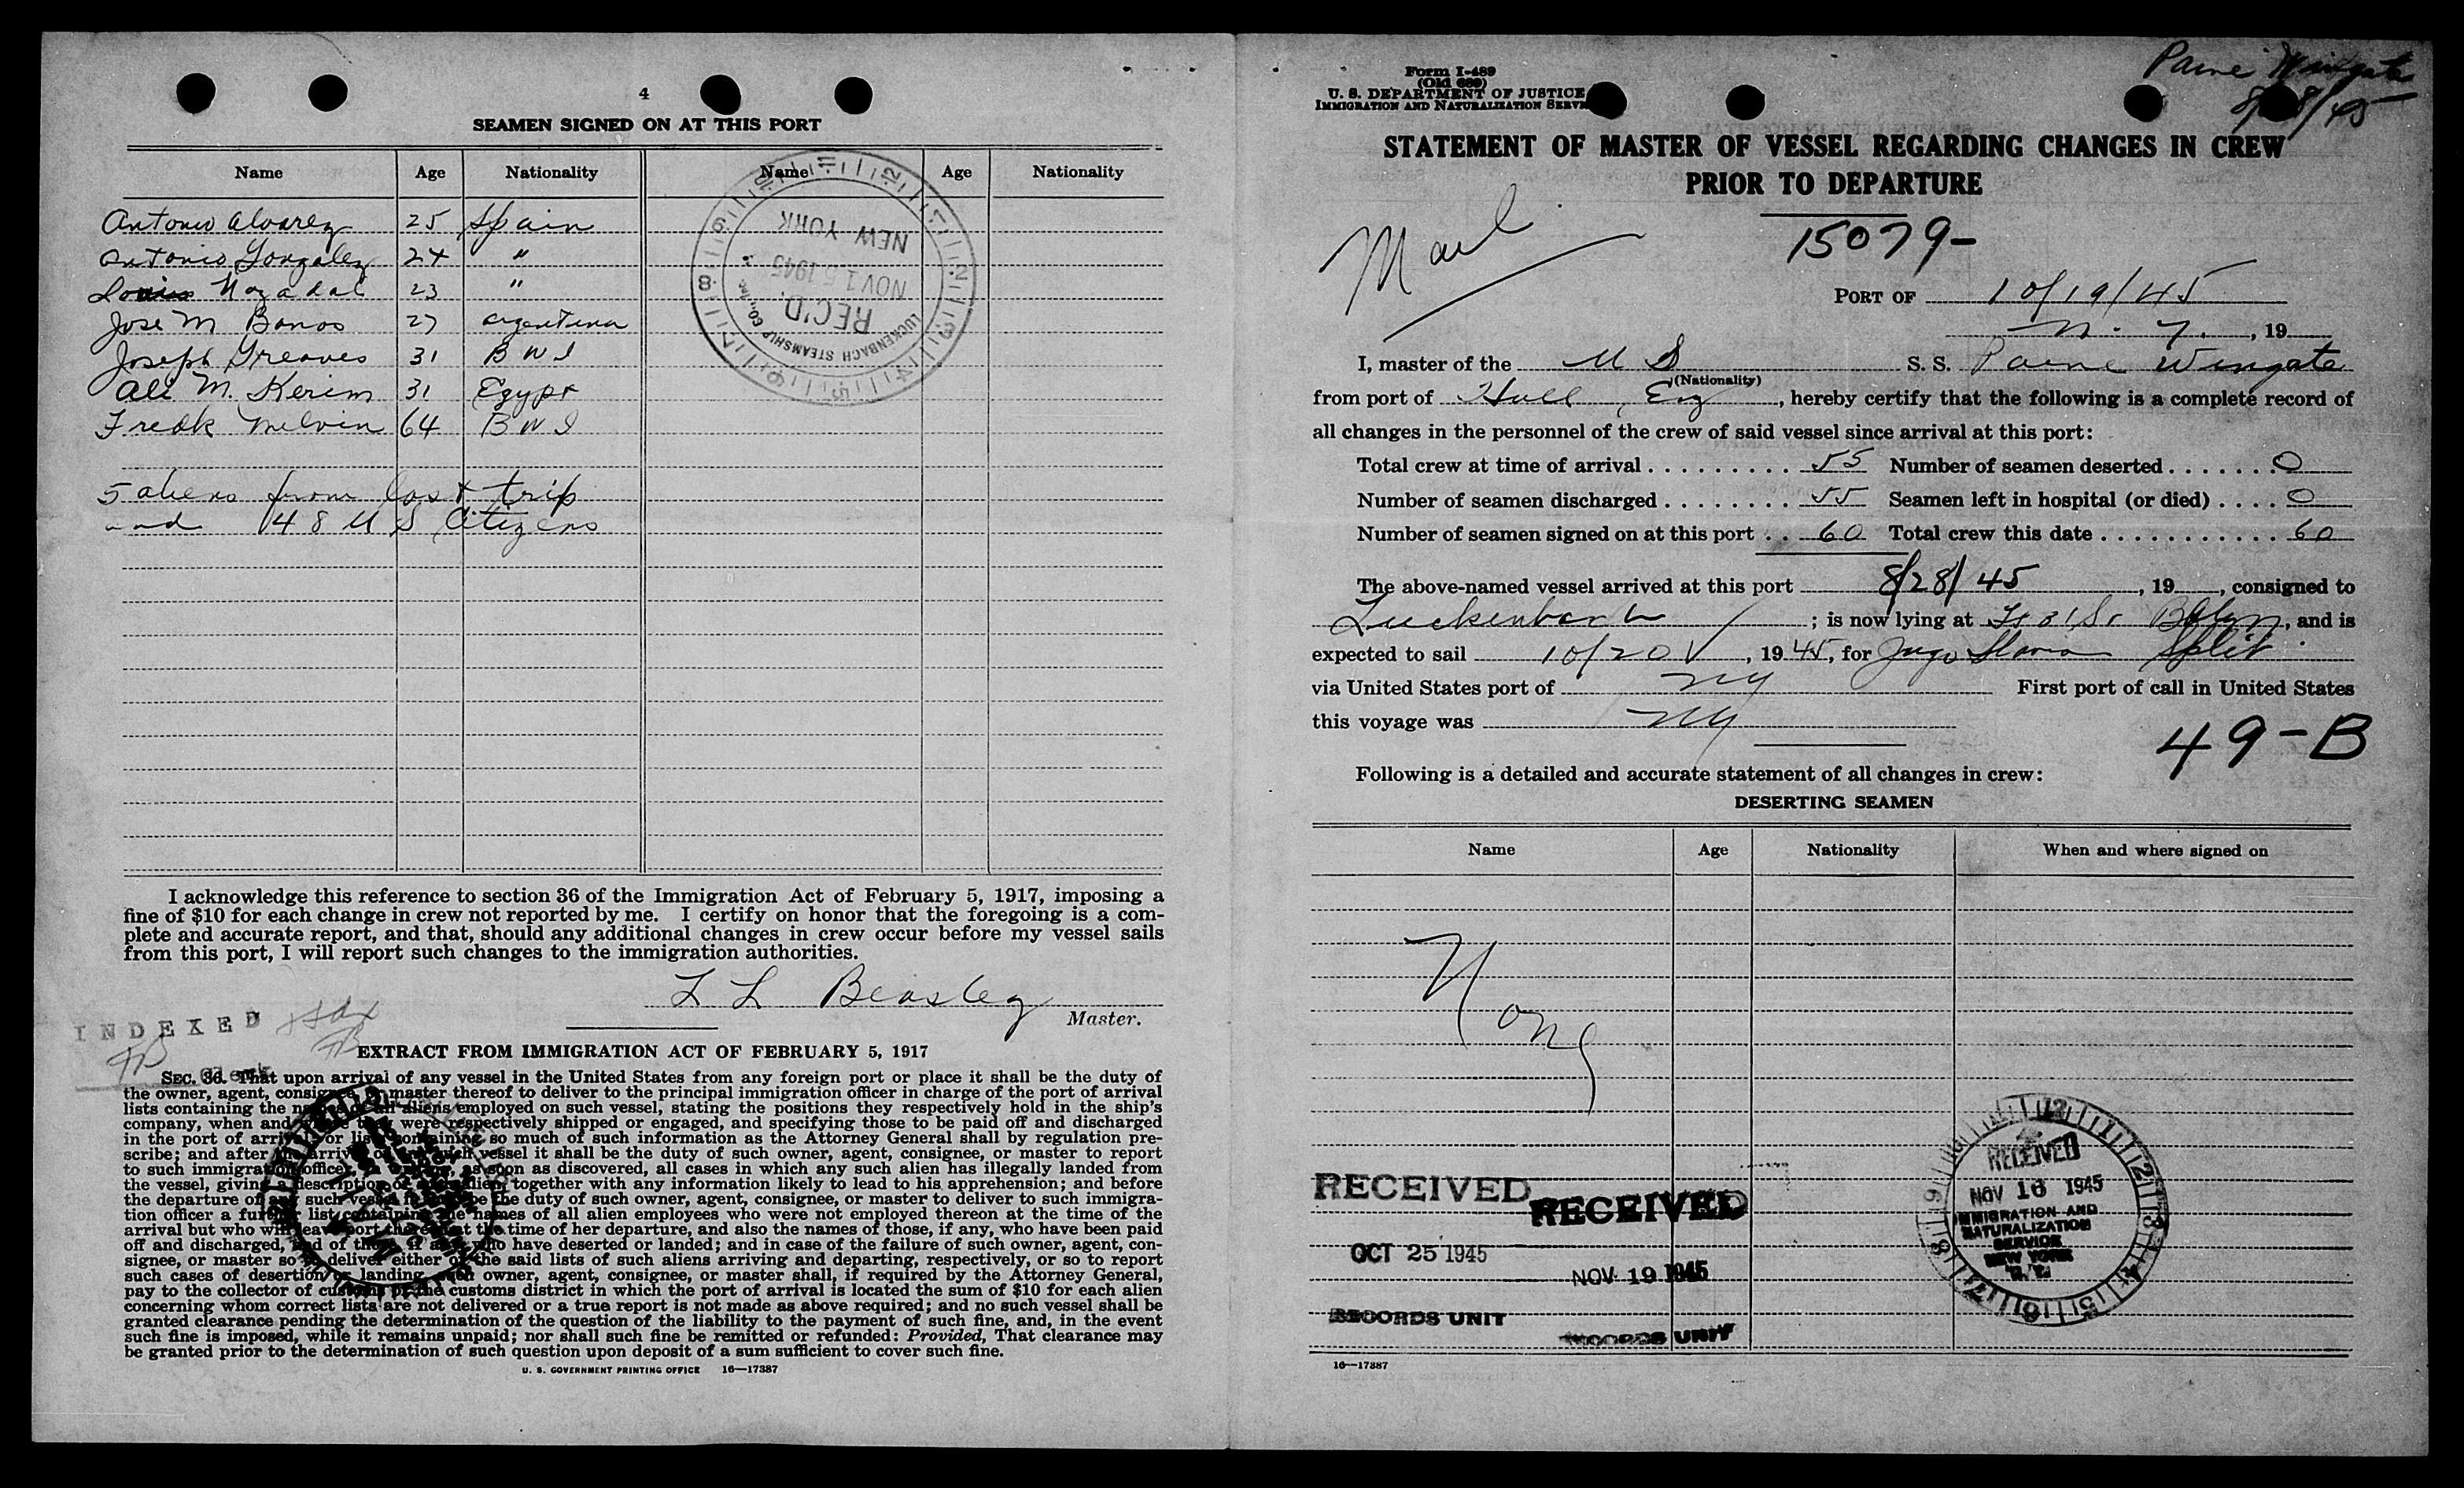 4
SEAMEN SIGNED ON AT THIS PORT
Name Age Nationality Name Age Nationality
Antonio Alvarez 25 Spain
Antonio Gonzalez 24 "
Louis Nogadal 23 "
Jose M Banos 27 Argentina
Joseph Greaves 31 B W I
Ali M. Kerim 31 Egypt
Fredk Melvin 64 B W I
5 aliens from last trip
and 48 U S Citizens
REC'D.
NOV 15 1945
NEW YORK
LUCKENBACH STEAMSHIP CO., INC.
I acknowledge this reference to section 36 of the Immigration Act of February 5, 1917, imposing a
fine of $10 for each change in crew not reported by me. I certify on honor that the foregoing is a com-
plete and accurate report, and that, should any additional changes in crew occur before my vessel sails
from this port, I will report such changes to the immigration authorities.
L L Beasley
Master.
INDEXED
Clerk
EXTRACT FROM IMMIGRATION ACT OF FEBRUARY 5, 1917
SEC. 36. That upon arrival of any vessel in the United States from any foreign port or place it shall be the duty of
the owner, agent, consignee, or master thereof to deliver to the principal immigration officer in charge of the port of arrival
lists containing the names of all aliens employed on such vessel, stating the positions they respectively hold in the ship's
company, when and where they were respectively shipped or engaged, and specifying those to be paid off and discharged
in the port of arrival; or lists containing so much of such information as the Attorney General shall by regulation pre-
scribe; and after the arrival of any such vessel it shall be the duty of such owner, agent, consignee, or master to report
to such immigration officer, in writing, as soon as discovered, all cases in which any such alien has illegally landed from
the vessel, giving a description of such alien, together with any information likely to lead to his apprehension; and before
the departure of any such vessel it shall be the duty of such owner, agent, consignee, or master to deliver to such immigra-
tion officer a further list containing the names of all alien employees who were not employed thereon at the time of the
arrival but who will leave port thereon at the time of her departure, and also the names of those, if any, who have been paid
off and discharged, and of those, if any, who have deserted or landed; and in case of the failure of such owner, agent, con-
signee, or master so to deliver either of the said lists of such aliens arriving and departing, respectively, or so to report
such cases of desertion or landing, such owner, agent, consignee, or master shall, if required by the Attorney General,
pay to the collector of customs of the customs district in which the port of arrival is located the sum of $10 for each alien
concerning whom correct lists are not delivered or a true report is not made as above required; and no such vessel shall be
granted clearance pending the determination of the question of the liability to the payment of such fine, and, in the event
such fine is imposed, while it remains unpaid; nor shall such fine be remitted or refunded: Provided, That clearance may
be granted prior to the determination of such question upon deposit of a sum sufficient to cover such fine.
U. S. GOVERNMENT PRINTING OFFICE 16—17387
Form I-489
(Old 689)
U. S. DEPARTMENT OF JUSTICE
IMMIGRATION AND NATURALIZATION SERVICE
Paine Wingate
8/28/45
STATEMENT OF MASTER OF VESSEL REGARDING CHANGES IN CREW
PRIOR TO DEPARTURE
Mail
15079-
PORT OF 10/19/45
N. Y., 19
I, master of the U S S. S. Paine Wingate
(Nationality)
from port of Hull, Eng, hereby certify that the following is a complete record of
all changes in the personnel of the crew of said vessel since arrival at this port:
Total crew at time of arrival 55 Number of seamen deserted 0
Number of seamen discharged 55 Seamen left in hospital (or died) 0
Number of seamen signed on at this port 60 Total crew this date 60
The above-named vessel arrived at this port 8/28/45, 19, consigned to
Luckenbach; is now lying at Bklyn, and is
expected to sail 10/20, 1945, for Jugo Slavia Split
via United States port of NY First port of call in United States
this voyage was NY
49-B
Following is a detailed and accurate statement of all changes in crew:
DESERTING SEAMEN
Name Age Nationality When and where signed on
None
RECEIVED
OCT 25 1945
RECORDS UNIT
RECEIVED
NOV 19 1945
RECORDS UNIT
RECEIVED
NOV 16 1945
IMMIGRATION AND
NATURALIZATION
SERVICE
NEW YORK
N.Y.
16—17387